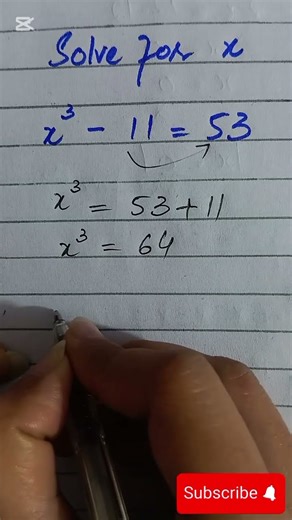 Solve for x
x³ - 11 = 53
x³ = 53 + 11
x³ = 64
Subscribe